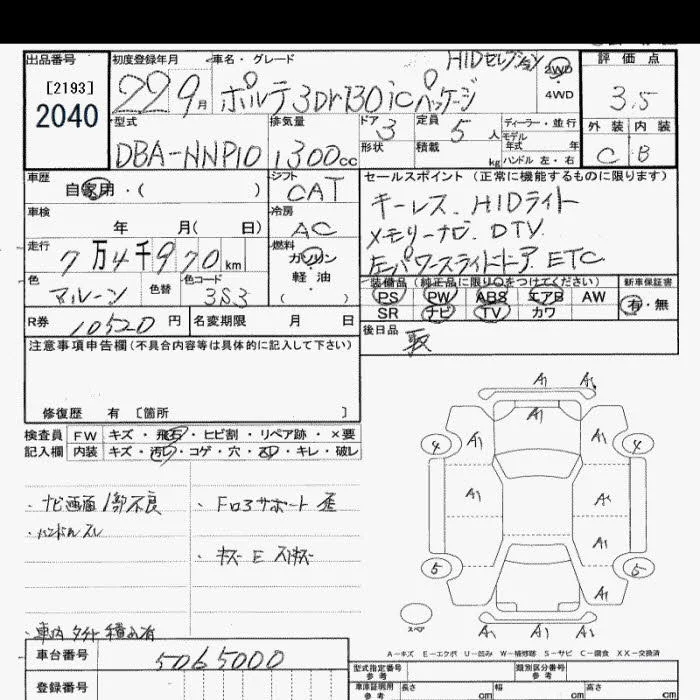 出品番号 初度登録年月 車名・グレード HIDセレクション 2WD 評価点
[2193]
2040
22 9月 ポルテ 3Dr 130iCパッケージ 4WD 3.5
型式 排気量 ドア 3 定員 5人 ディーラー・並行 外装 内装
モデル年式 年
DBA-NNP10 1300cc 形状 積載 kg ハンドル 左・右 C B
車歴 シフト セールスポイント (正常に機能するものに限ります)
自家用・( ) CAT キーレス. HIDライト
車検 冷房
年 月( 日) AC メモリーナビ. DTV.
走行 燃料
7万4千970km ガソリン 左パワースライドドア. ETC
軽油
色 色替 色コード ( ) 装備品 (純正品に限り○をつけてください) 新車保証書
マルーン 3S3 PS PW ABS エアB AW 有・無
SR ナビ TV カワ
R券 10520円 名変期限 月 日 後日品
注意事項申告欄(不具合内容等は具体的に記入して下さい) 取
修復歴 有 [箇所 ]
検査員 FW キズ・飛石・ヒビ割・リペア跡・×要
記入欄 内装 キズ・汚レ・コゲ・穴・・キレ・破レ
A1
A1 A1 A1
4 4
A1 A1
A1
5 5
A1
A1 A1 A1
・ナビ画面1部不良 ・Fロアサポート 歪
・ハンドルスレ
・キズ E スリキズ
・車内 積込有
スペア
A-キズ E-エクボ U-凹み W-補修跡 S-サビ C-腐食 XX-交換済
車台番号 5065000 型式指定番号 参考 類別区分番号 参考
登録番号 車庫証明用 参考 長さ cm 幅 cm 高さ cm